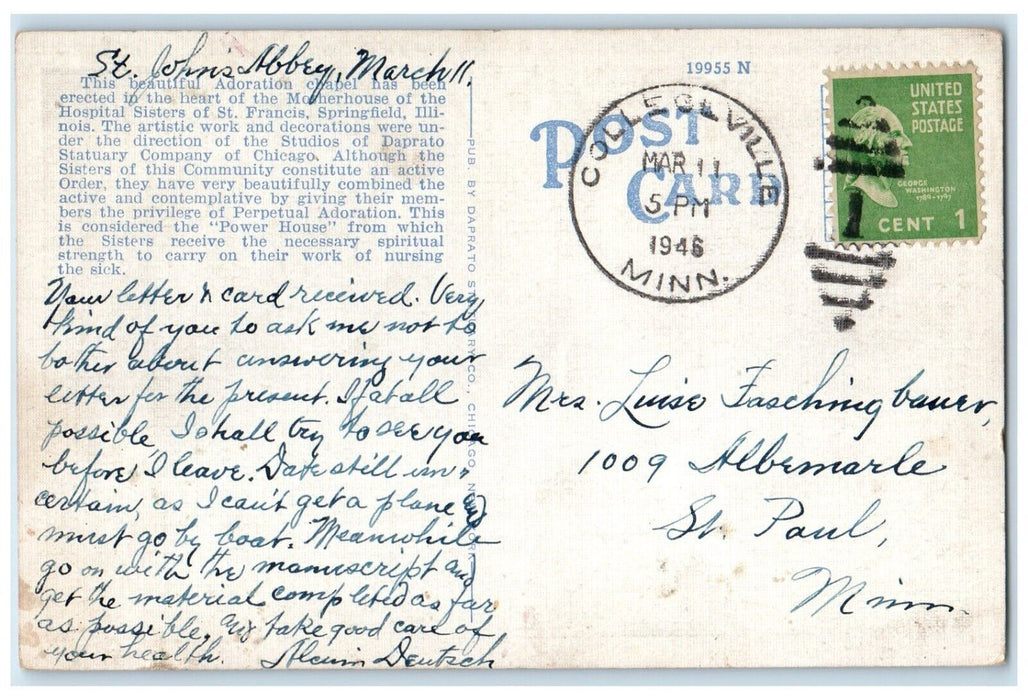 St. John's Abbey, March 11.
This beautiful Adoration chapel has been
erected in the heart of the Motherhouse of the
Hospital Sisters of St. Francis, Springfield, Illi-
nois. The artistic work and decorations were un-
der the direction of the Studios of Daprato
Statuary Company of Chicago. Although the
Sisters of this Community constitute an active
Order, they have very beautifully combined the
active and contemplative by giving their mem-
bers the privilege of Perpetual Adoration. This
is considered the "Power House" from which
the Sisters receive the necessary spiritual
strength to carry on their work of nursing
the sick.
Your letter & card received. Very
kind of you to ask me not to
bother about answering your
letter for the present. If at all
possible, I shall try to see you
before I leave. Date still un-
certain, as I can't get a plane and
must go by boat. Meanwhile
go on with the manuscript and
get the material completed as far
as possible. take good care of
your health. Alcuin Deutsch
PUB. BY DAPRATO STATUARY CO., CHICAGO, NEW YORK
19955 N
POST
CARD
COLLEGEVILLE
MAR 11
5 PM
1946
MINN.
UNITED
STATES
POSTAGE
GEORGE
WASHINGTON
1789-1797
1 CENT 1
Mrs. Luise Faschingbauer,
1009 Albemarle
St. Paul,
Minn.